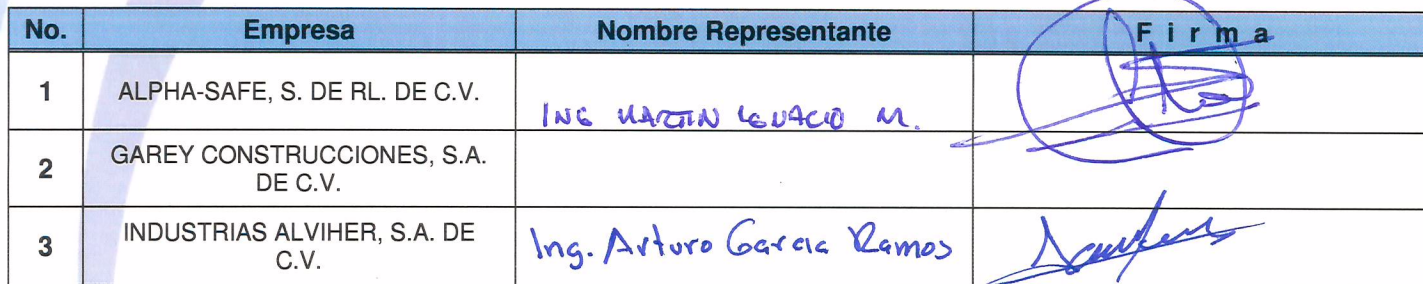 No. Empresa Nombre Representante Firma
1 ALPHA-SAFE, S. DE RL. DE C.V. ING MARTIN IGNACIO M.
2 GAREY CONSTRUCCIONES, S.A.
DE C.V.
3 INDUSTRIAS ALVIHER, S.A. DE
C.V. Ing. Arturo Garcia Ramos